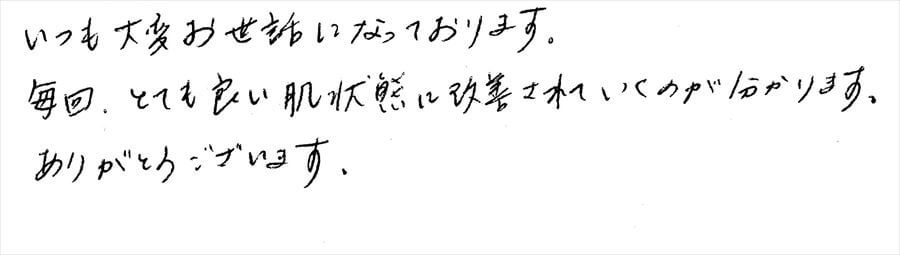 いつも大変お世話になっております。
毎回、とても良い肌状態に改善されていくのが分かります。
ありがとうございます。